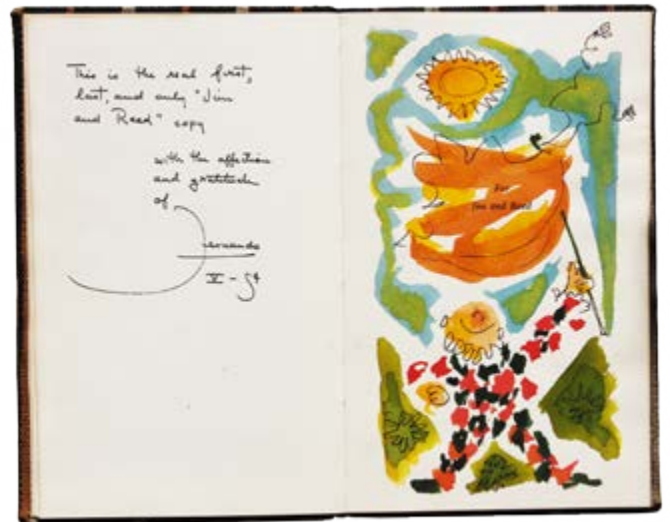 This is the real first,
last, and only "Jim
and Reed" copy
with the affection
and gratitude
of
V - 54
For
Jim and Reed